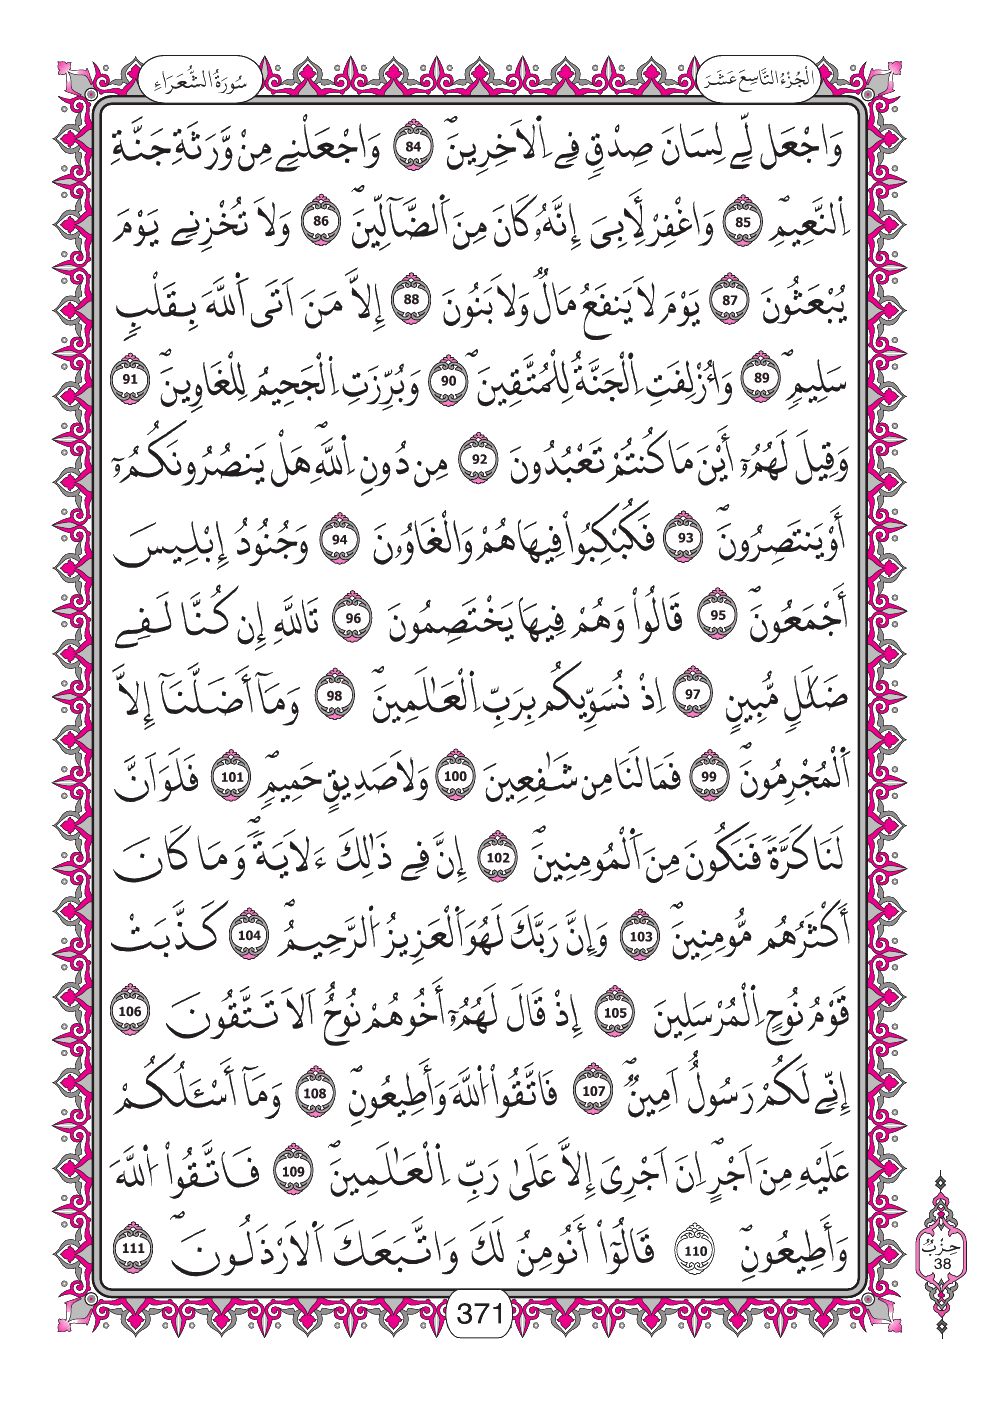 سُورَةُ الشُّعَرَاءِ
الْجُزْءُ التَّاسِعَ عَشَرَ
وَاجْعَل لِّے لِسَانَ صِدْقٖ فِے اِ۬لَاخِرِينَۖ 84 وَاجْعَلْنِے مِنْ وَّرَثَةِ جَنَّةِ
اِ۬لنَّعِيمِۖ 85 وَاغْفِرْ لِأَبِىَ إِنَّهُۥ كَانَ مِنَ اَ۬لضَّآلِّينَۖ 86 وَلَا تُخْزِنِے يَوْمَ
يُبْعَثُونَ 87 يَوْمَ لَا يَنفَعُ مَالٞ وَلَا بَنُونَ 88 إِلَّا مَنَ اَتَى اَ۬للَّهَ بِقَلْبٖ
سَلِيمٖۖ 89 وَأُزْلِفَتِ اِ۬لْجَنَّةُ لِلْمُتَّقِينَۖ 90 وَبُرِّزَتِ اِ۬لْجَحِيمُ لِلْغَاوِينَۖ 91
وَقِيلَ لَهُمُۥٓ أَيْنَ مَا كُنتُمْ تَعْبُدُونَ 92 مِن دُونِ اِ۬للَّهِۖ هَلْ يَنصُرُونَكُمُۥٓ
أَوْ يَنتَصِرُونَۖ 93 فَكُبْكِبُواْ فِيهَا هُمْ وَالْغَاوُۥنَ 94 وَجُنُودُ إِبْلِيسَ
أَجْمَعُونَۖ 95 قَالُواْ وَهُمْ فِيهَا يَخْتَصِمُونَ 96 تَاللَّهِ إِن كُنَّا لَفِے
ضَلَٰلٖ مُّبِينٍ 97 اِذْ نُسَوِّيكُم بِرَبِّ اِ۬لْعَٰلَمِينَۖ 98 وَمَآ أَضَلَّنَآ إِلَّا
اَ۬لْمُجْرِمُونَۖ 99 فَمَا لَنَا مِن شَٰفِعِينَ 100 وَلَا صَدِيقٍ حَمِيمٖۖ 101 فَلَوَ اَنَّ
لَنَا كَرَّةٗ فَنَكُونَ مِنَ اَ۬لْمُومِنِينَۖ 102 إِنَّ فِے ذَٰلِكَ ءَلَايَةٗۖ وَمَا كَانَ
أَكْثَرُهُم مُّومِنِينَۖ 103 وَإِنَّ رَبَّكَ لَهُوَ اَ۬لْعَزِيزُ اُ۬لرَّحِيمُۖ 104 كَذَّبَتْ
قَوْمُ نُوحٍ اِ۬لْمُرْسَلِينَ 105 إِذْ قَالَ لَهُمُۥٓ أَخُوهُمْ نُوحٌ اَلَا تَتَّقُونَ 106
إِنِّے لَكُمْ رَسُولٌ اَمِينٞۖ 107 فَاتَّقُواْ اُ۬للَّهَ وَأَطِيعُونِۖ 108 وَمَآ أَسْـَٔلُكُمْ
عَلَيْهِ مِنَ اَجْرٍۖ اِنَ اَجْرِىَ إِلَّا عَلَىٰ رَبِّ اِ۬لْعَٰلَمِينَۖ 109 فَاتَّقُواْ اُ۬للَّهَ
وَأَطِيعُونِۖ 110 قَالُوٓاْ أَنُومِنُ لَكَ وَاتَّبَعَكَ اَ۬لَارْذَلُونَۖ 111
حِزْبُ
38
371